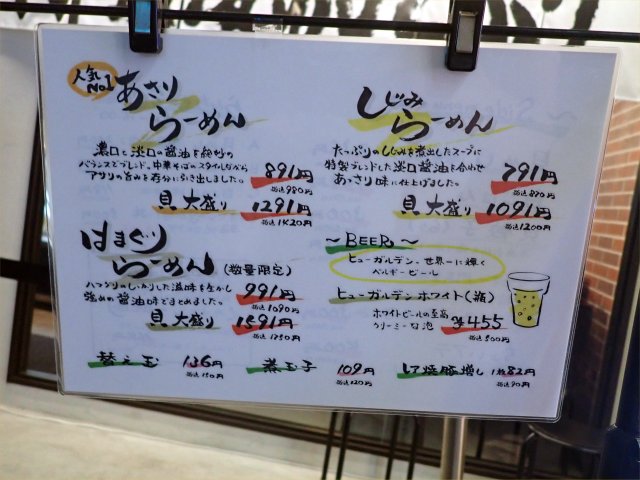 人気No1
あさり
らーめん
濃口と淡口の醤油を絶妙の
バランスでブレンド。中華そばのスタイルながら
アサリの旨みを存分に引き出しました。
891円
税込980円
貝大盛り 1291円
税込1420円
はまぐり
らーめん (数量限定)
ハマグリのしっかりした滋味を生かし
強めの醤油味でまとめました。
991円
税込1090円
貝大盛り 1591円
税込1750円
しじみ
らーめん
たっぷりのしじみを煮出したスープに
特製ブレンドした淡口醤油を合わせ
あっさり味に仕上げました。
791円
税込870円
貝大盛り 1091円
税込1200円
~BEER~
ヒューガルデン、世界一に輝く
ベルギービール
ヒューガルデンホワイト(瓶)
ホワイトビールの至高
クリーミーな泡 ¥455
税込500円
替え玉 136円
税込150円
煮玉子 109円
税込120円
レア焼豚増し 1枚82円
税込90円